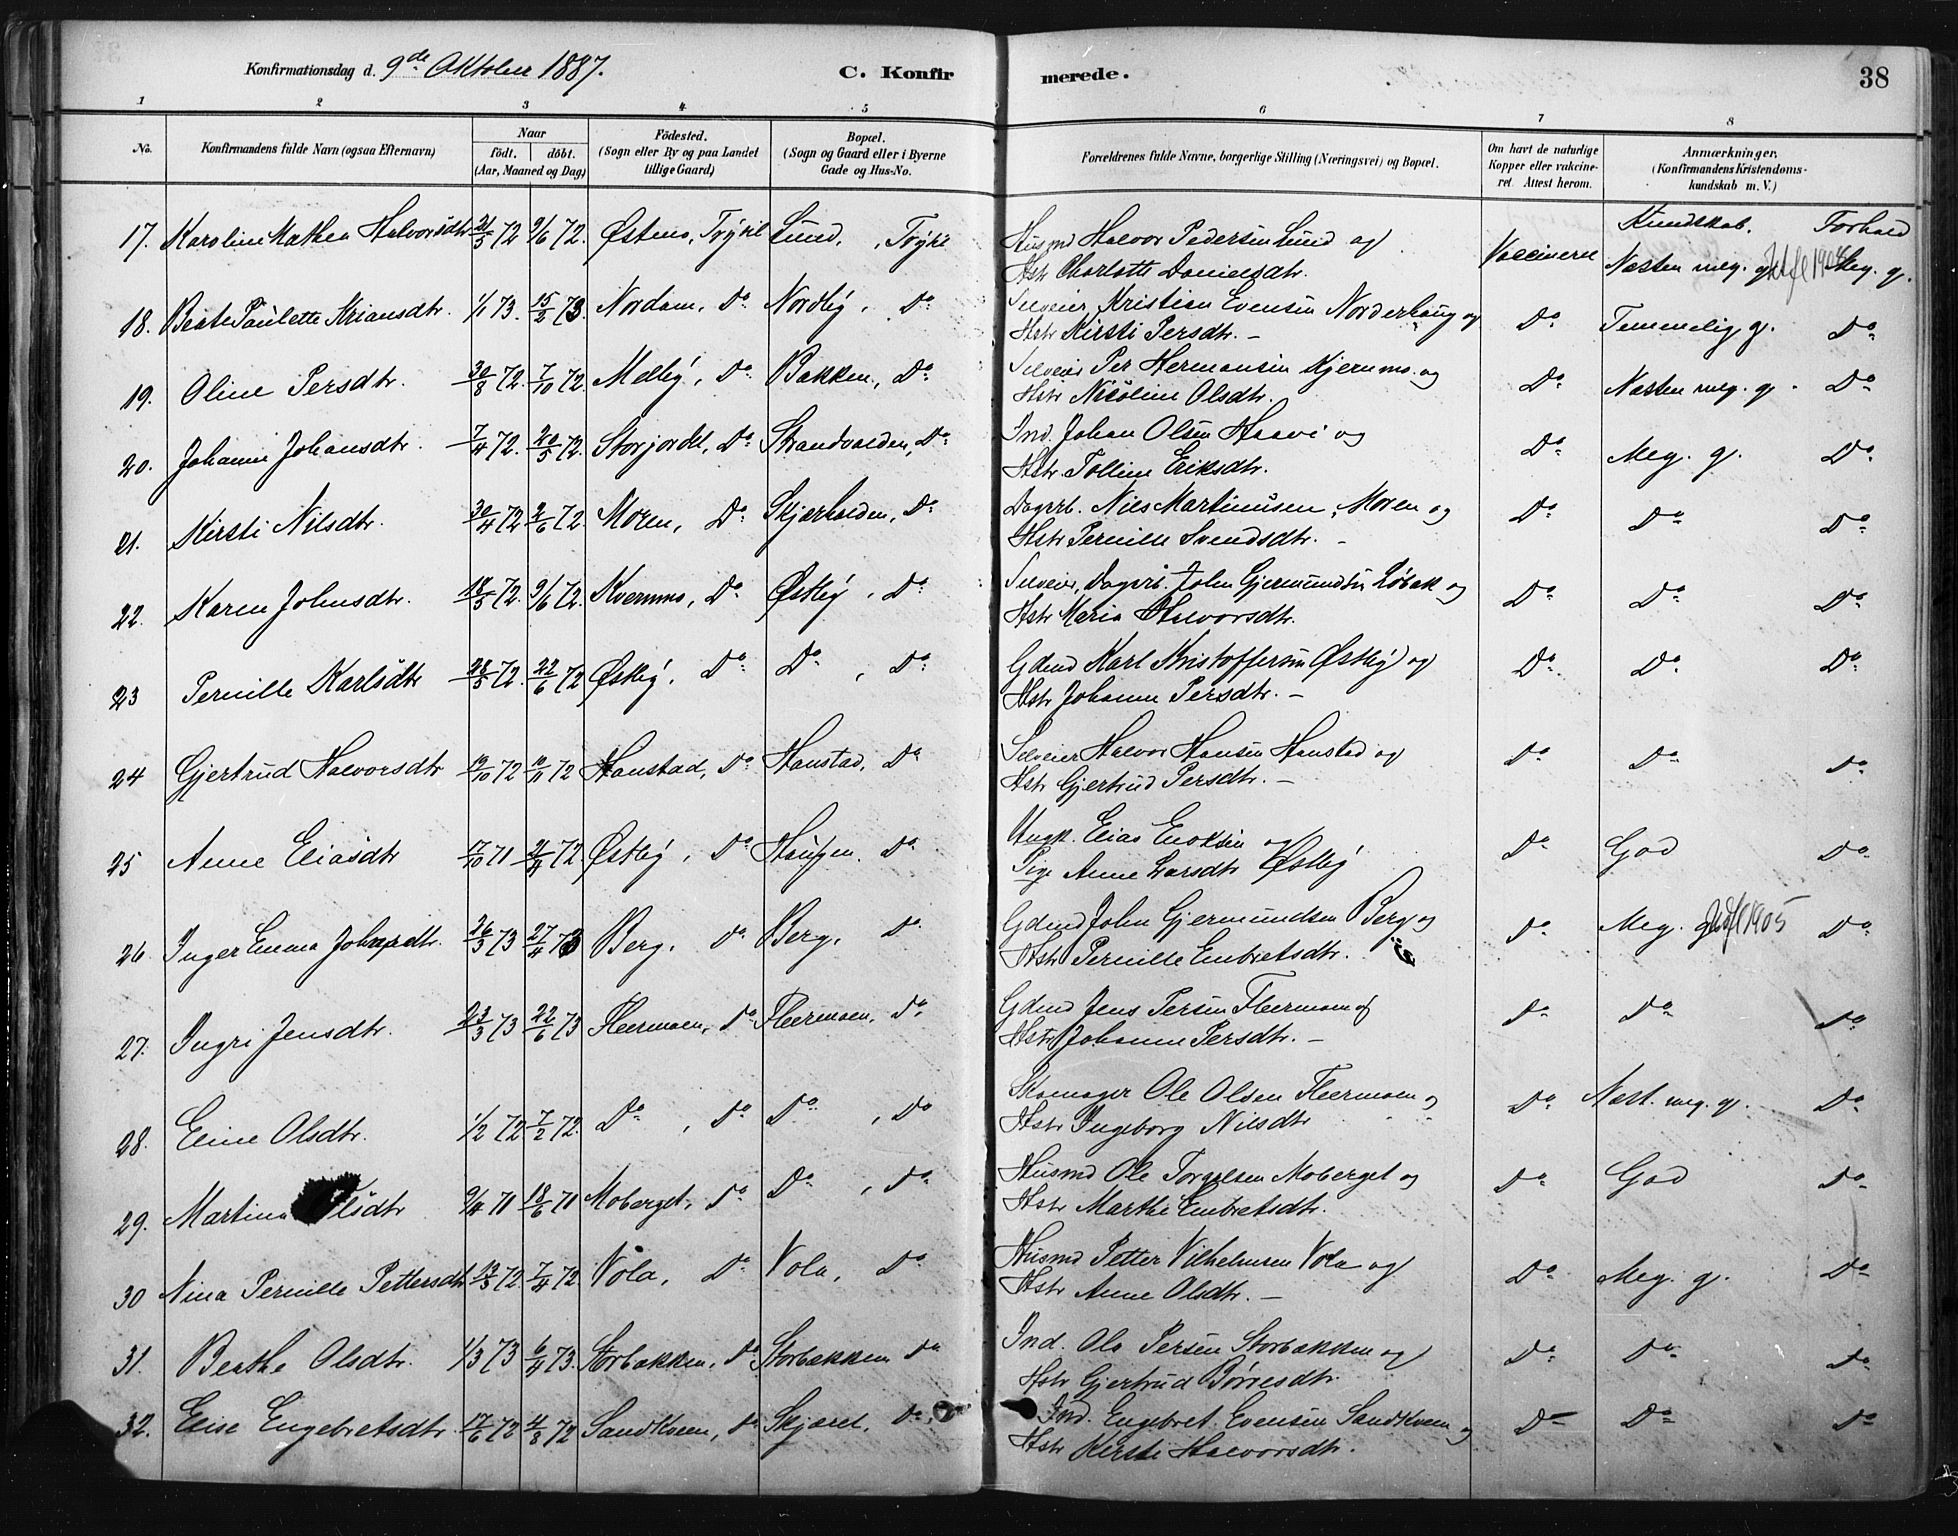 Konfirmationsdag d. 9de Oktober 1887. C. Konfirmerede. 38
1 2 3 4 5 6 7 8
No. Konfirmandens fulde Navn (ogsaa Efternavn) Naar født. døbt. (Aar, Maaned og Dag) Födested. (Sogn eller By og paa Landet tillige Gaard) Bopæl. (Sogn og Gaard eller i Byerne Gade og Hus-No. Forældrenes fulde Navne, borgerlige Stilling (Næringsvei) og Bopæl. Om havt de naturlige Kopper eller vakcineret. Attest herom. Anmærkninger. (Konfirmandens Kristendomskundskab m. V.)
Kundskab. Forhold
17. Karoline Mathea Halvorsdtr 21/5 72 9/6 72. Østmo, Trysil Lund, Trysil Husmd Halvor Pedersen Lund og Vaccineret Næsten meg. g. Meg. g.
Hstr Charlotte Danielsdtr.
18. Beate Paulette Kriansdtr. 1/1 73. 15/2 73 Nordom, Do Nordby, Do Selveier, Kristian Evensen Norderhaug og Do Temmelig g. Do
Hstr Kirsti Persdtr. –
19. Oline Persdtr. 30/8 72. 7/10 72. Melby, Do Bakken, Do Selveier Per Hermansen Kjernmo og Do Næsten meg. g. Do
Hstr Nicoline Olsdtr.
20. Johanne Johansdtr. 7/4 72. 20/5 72. Storjordet, Do Strandvolden, Do Ind. Johan Olsen Haavi og Do Meg. g. Do
Hstr. Polline Eriksdtr.
21. Kirsti Nilsdtr. 30/4 72 2/6 72. Moren, Do Skjærholden, Do Dagarb. Nils Martinusen, Moren og Do Do Do
Hstr Pernille Svendsdtr. –
22. Karen Johnsdtr. 18/5 72. 9/6 72. Kvernmo, Do Østby, Do Selveier, Dagarb. John Gjermundsen Løbak og Do Do Do
Hstr Maria Halvorsdtr.
23 Pernille Karlsdtr 28/5 72. 22/6 72 Østby, Do Do, Do Gdmd Karl Kristoffersen Østby og Do Do Do
Hstr Johanne Persdtr. –
24 Gjertrud Halvorsdtr 19/10 72 10/11 72 Hanstad, Do Hanstad, Do Selveier Halvor Hansen Hanstad og Do Do Do
Hstr Gjertrud Persdtr. –
25 Anne Eliasdtr 17/10 71 21/4 72 Østby, Do Haugen, Do Ungk. Elias Enoksen og Do God Do
Pige Anne Larsdtr Østby
26. Inger Emma Johnsdtr. 26/3 73 27/4 73 Berg, Do Berg, Do Gdmd John Gjermundsen Berg og Do Meg. 1905 Do
Hstr Pernille Embretsdtr.
27. Ingri Jensdtr. 23/3 73 22/6 73 Fleermoen, Do Fleermoen, Do Gdmd Jens Persen Fleermoen og Do Do Do
Hstr Johanne Persdtr. –
28. Eline Olsdtr. 1/2 72 7/2 72. Do, Do Do, Do Skomager Ole Olsen Fleermoen og Do Næst. meg. g. Do
Hstr Ingeborg Nilsdtr
29. Martina Olsdtr 9/4 71 18/6 71 Moberget, Do Do, Do Husmd Ole Torgelsen Moberget og Do God Do
Hstr Marthe Embretsdtr.
30 Nina Pernille Pettersdtr 7/4 72. Vola, Do Vola, Do Husmd Petter Vilhelmsen Vola og Do Meg. g. Do
Hstr Anne Olsdtr. –
31. Berthe Olsdtr. 1/3 73 6/4 73. Storbækken, Do Storbækken Do Ind. Ole Persen Storbækken og Do Do Do
Hstr Gjertrud Børresdtr.
32. Elise Engebretsdtr. 17/6 72 4/8 72 Sandkveen, Do Skjæret, Do Ind. Engebret Evensen Sandkveen og Do Do Do
Hstr Kirsti Halvorsdtr.